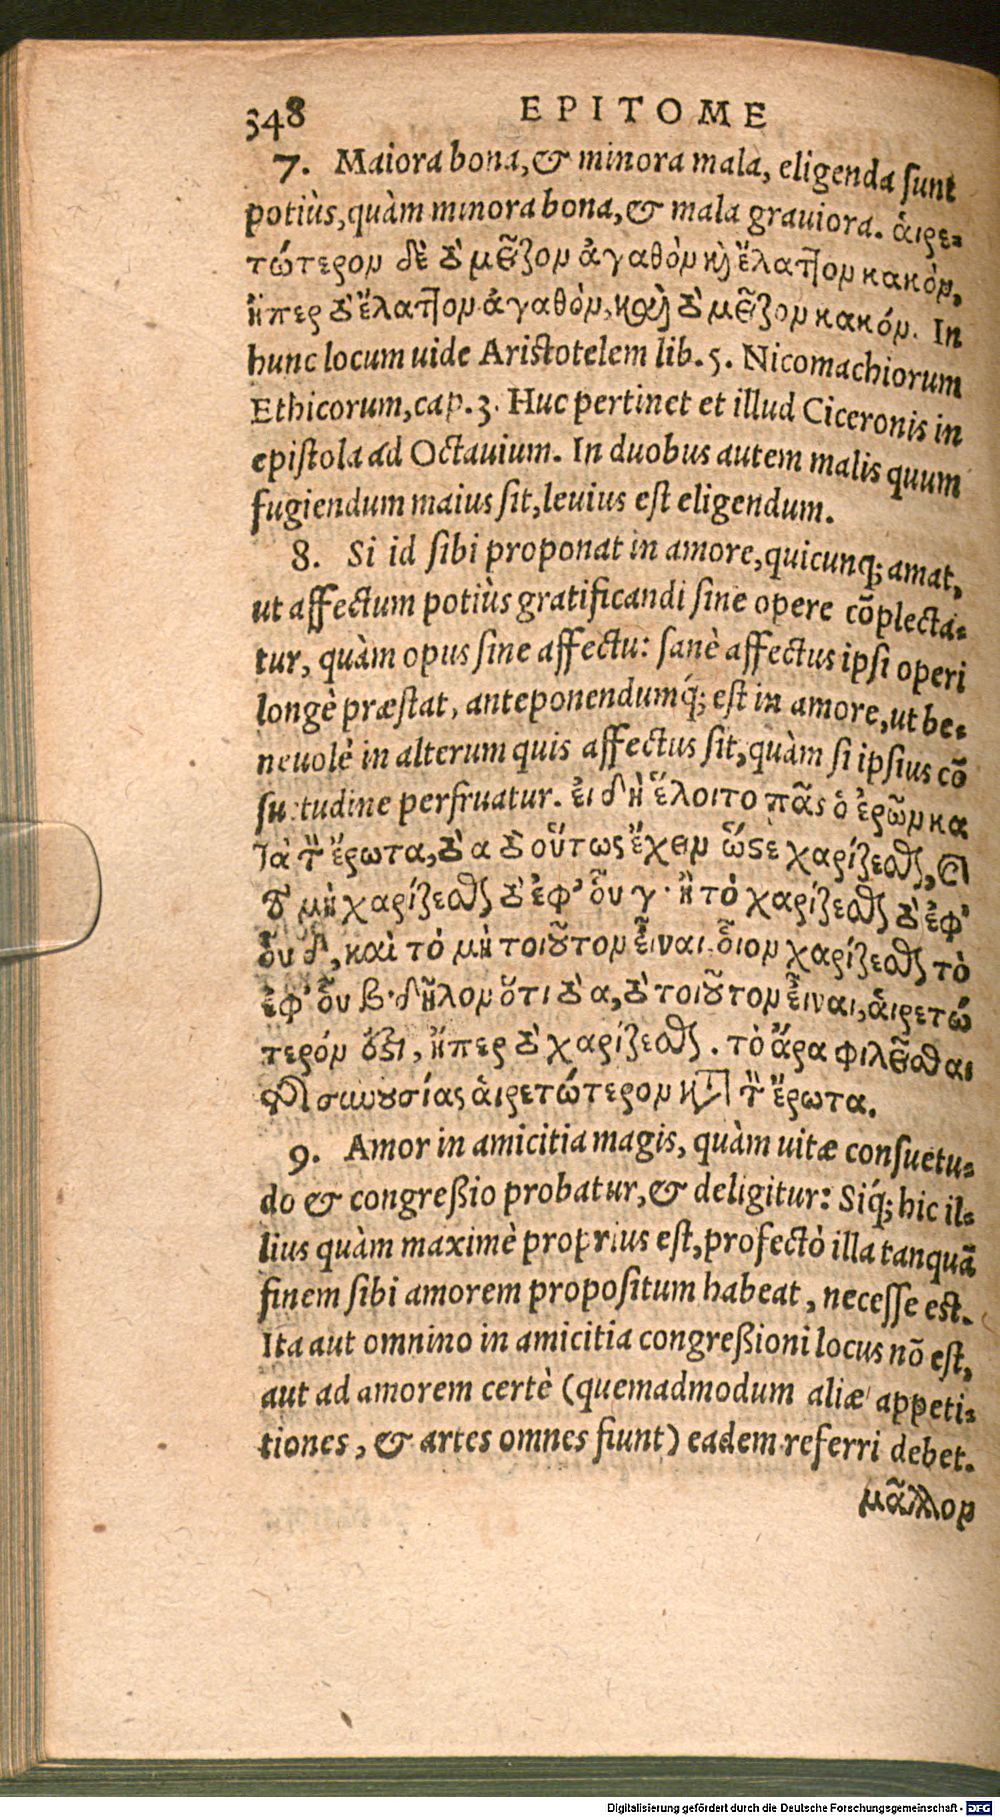 348 EPITOME
7. Maiora bona, & minora mala, eligenda sunt
potiùs, quàm minora bona, & mala grauiora. ἁιρε-
τώτερον δὲ τὸ μεῖζον ἀγαθὸν κὶ ἔλαττον κακὸν,
ἤπερ τὸ ἔλαττον ἀγαθὸν, καὶ τὸ μεῖζον κακόν. In
hunc locum uide Aristotelem lib. 5. Nicomachiorum
Ethicorum, cap. 3. Huc pertinet et illud Ciceronis in
epistola ad Octauium. In duobus autem malis quum
fugiendum maius sit, leuius est eligendum.
8. Si id sibi proponat in amore, quicunq; amat,
ut affectum potiùs gratificandi sine opere cõplecta-
tur, quàm opus sine affectu: sanè affectus ipsi operi
longè præstat, anteponendumq́; est in amore, ut be-
neuolè in alterum quis affectus sit, quàm si ipsius cõ
suetudine perfruatur. ἐι δὴ ἕλοιτο πᾶς ὁ ἐρῶν κα
τὰ τὸν ἔρωτα, τὸ α τὸ οὕτως ἔχειν ὥστε χαρίζεσθαι, καὶ
τὸ μὴ χαρίζεσθαι τὸ ἐφ' οὗ γ· ἢ τὸ χαρίζεσθαι τὸ ἐφ'
οὗ δ, καὶ τὸ μὴ τοιοῦτον εἶναι οἷον χαρίζεσθαι τὸ
ἐφ' οὗ β· δῆλον ὅτι τὸ α, τὸ τοιοῦτον εἶναι, ἁιρετώ
τερόν ἐστι, ἤπερ τὸ χαρίζεσθαι. τὸ ἄρα φιλεῖσθαι
τῆς συνουσίας ἁιρετώτερον κατὰ τὸν ἔρωτα.
9. Amor in amicitia magis, quàm uitæ consuetu-
do & congreßio probatur, & deligitur: Siq́; hic il-
lius quàm maximè proprius est, profectò illa tanquã
finem sibi amorem propositum habeat, necesse est.
Ita aut omnino in amicitia congreßioni locus nõ est,
aut ad amorem certè (quemadmodum aliæ appeti-
tiones, & artes omnes fiunt) eadem referri debet.
μᾶλλον
Digitalisierung gefördert durch die Deutsche Forschungsgemeinschaft - DFG